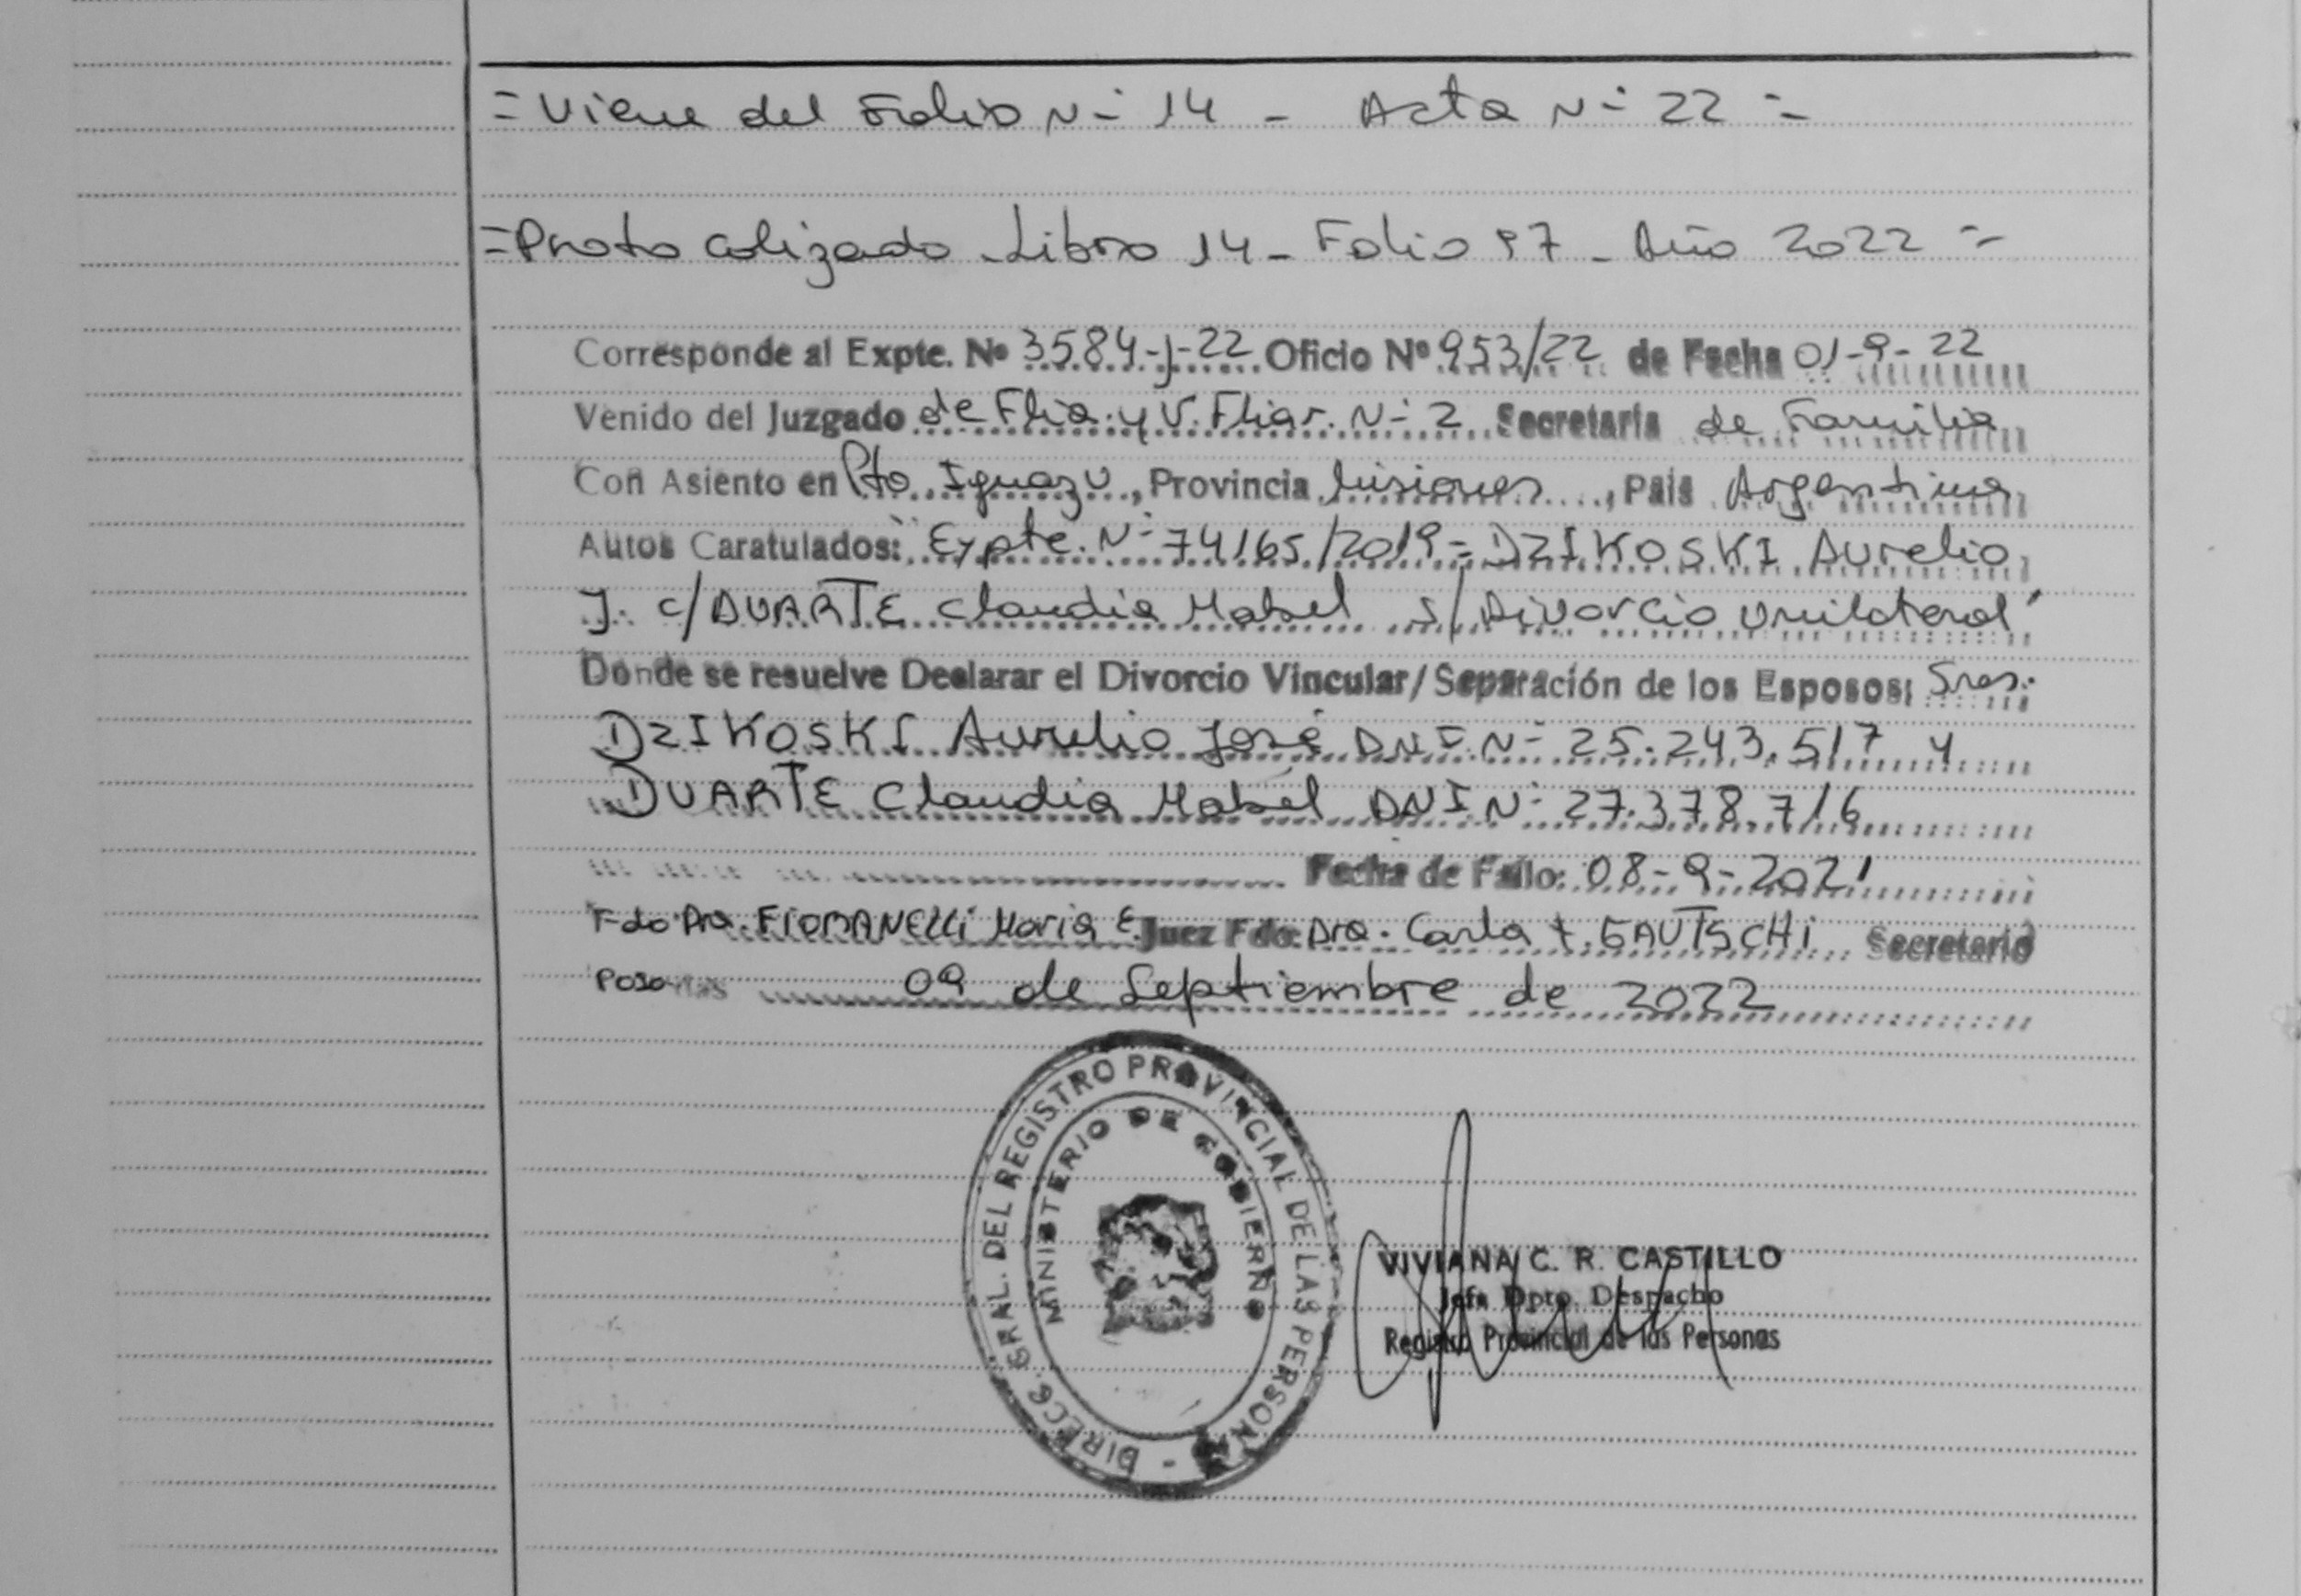 = Viene del Folio Nº 14 - Acta Nº 22 =
= Protocolizado - Libro 14 - Folio 97 - Año 2022 =
Corresponde al Expte. Nº 3584-J-22 Oficio Nº 953/22 de Fecha 01-9-22
Venido del Juzgado de Flia. y V. Fliar. Nº 2 Secretaría de Familia
Con Asiento en Pto Iguazu, Provincia Misiones, Pais Argentina
Autos Caratulados: "Expte. Nº 74165/2019 = DZIKOSKI Aurelio
J. c/ DUARTE Claudia Mabel s/ Divorcio Unilateral"
Donde se resuelve Declarar el Divorcio Vincular/Separación de los Esposos: Sres.
DZIKOSKI Aurelio José DNI Nº 25.243.517 y
DUARTE Claudia Mabel DNI Nº 27.378.716
Fecha de Fallo: 08-9-2021
Fdo Dra. FIORANELLI Maria E. Juez Fdo: Dra. Carla I. GAUTSCHI Secretario
Posadas 09 de Septiembre de 2022
DIRECC. GRAL. DEL REGISTRO PROVINCIAL DE LAS PERSONAS -
MINISTERIO DE GOBIERNO
VIVIANA C. R. CASTILLO
Jefa Dpto. Despacho
Registro Provincial de las Personas